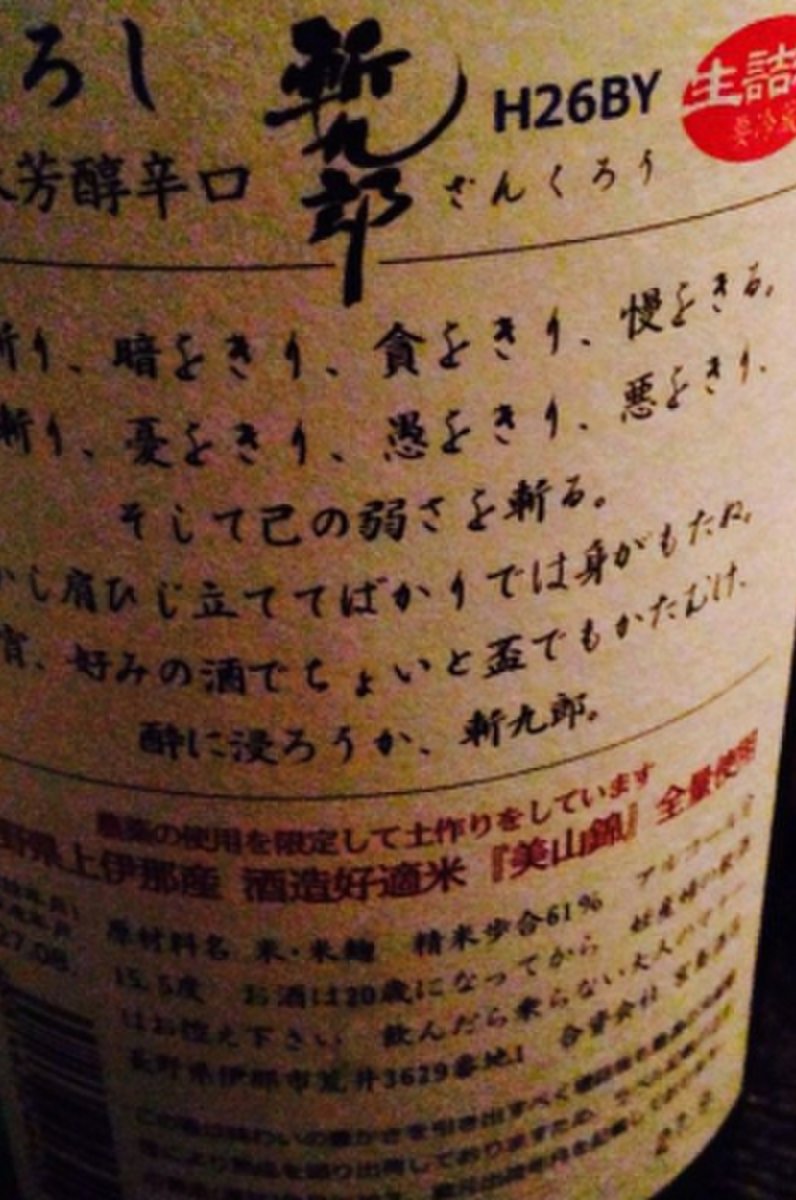 ろし 斬九郎 H26BY 生詰
芳醇辛口 ざんくろう 要冷蔵
斬り、暗をきり、貪をきり、慢をきる。
斬り、憂をきり、愚をきり、悪をきり、
そして己の弱さを斬る。
かし肩ひじ立ててばかりでは身がもたね。
宵、好みの酒でちょいと盃でもかたむけ、
酔に浸ろうか、斬九郎。
農薬の使用を限定して土作りをしています
野県上伊那産 酒造好適米『美山錦』全量使用
原材料名 米・米麹 精米歩合61% アルコール分
15.5度 お酒は20歳になってから 妊産婦の飲酒
はお控え下さい 飲んだら乗らない大人のマナー
長野県伊那市荒井3629番地1 合資会社 宮島酒店
27.08